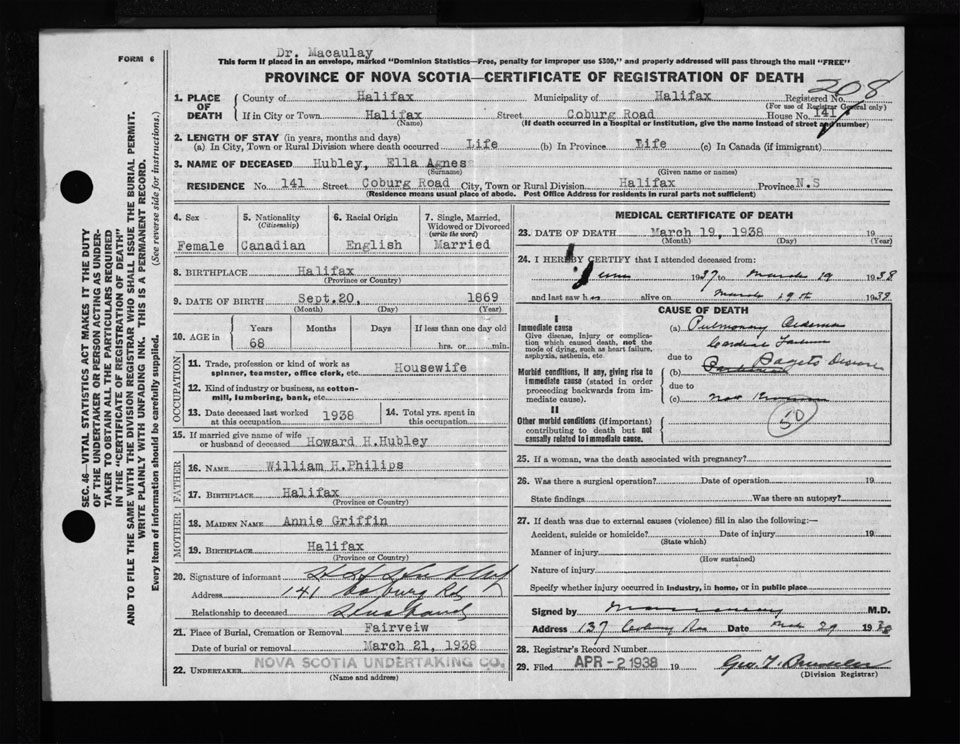 Dr. Macaulay
FORM 6
This form if placed in an envelope, marked "Dominion Statistics—Free, penalty for improper use $300," and properly addressed will pass through the mail "FREE"
PROVINCE OF NOVA SCOTIA—CERTIFICATE OF REGISTRATION OF DEATH
208
1. PLACE OF DEATH
County of Halifax Municipality of Halifax Registered No.
(For use of Registrar General only)
If in City or Town Halifax Street Coburg Road House No. 141
(Name) (If death occurred in a hospital or institution, give the name instead of street and number)
2. LENGTH OF STAY (in years, months and days)
(a) In City, Town or Rural Division where death occurred Life (b) In Province Life (c) In Canada (if immigrant)
3. NAME OF DECEASED Hubley, Ella Agnes
(Surname) (Given name or names)
RESIDENCE No. 141 Street Coburg Road City, Town or Rural Division Halifax Province N.S
(Residence means usual place of abode. Post Office Address for residents in rural parts not sufficient)
4. Sex
Female
5. Nationality
(Citizenship)
Canadian
6. Racial Origin
English
7. Single, Married, Widowed or Divorced
(write the word)
Married
8. BIRTHPLACE Halifax
(Province or Country)
9. DATE OF BIRTH Sept.20, 1869
(Month) (Day) (Year)
10. AGE in Years Months Days If less than one day old
68 hrs. or min.
OCCUPATION
11. Trade, profession or kind of work as
spinner, teamster, office clerk, etc. Housewife
12. Kind of industry or business, as cotton-
mill, lumbering, bank, etc.
13. Date deceased last worked
at this occupation 1938
14. Total yrs. spent in
this occupation
15. If married give name of wife
or husband of deceased Howard H.Hubley
FATHER
16. NAME William H.Philips
17. BIRTHPLACE Halifax
(Province or Country)
MOTHER
18. MAIDEN NAME Annie Griffin
19. BIRTHPLACE Halifax
(Province or Country)
20. Signature of informant
Address 141 Coburg Rd
Relationship to deceased Husband
21. Place of Burial, Cremation or Removal Fairveiw
Date of burial or removal March 21, 1938
22. UNDERTAKER NOVA SCOTIA UNDERTAKING CO.
(Name and address)
MEDICAL CERTIFICATE OF DEATH
23. DATE OF DEATH March 19, 1938 19
(Month) (Day) (Year)
24. I HEREBY CERTIFY that I attended deceased from:
June 1937 to March 19 1938
and last saw h alive on March 19th 1938
CAUSE OF DEATH
I
Immediate cause
Give disease, injury or complication which caused death, not the mode of dying, such as heart failure, asphyxia, asthenia, etc.
(a) Pulmonary Oedema
Cardiac Failure
due to
Morbid conditions, if any, giving rise to immediate cause (stated in order proceeding backwards from immediate cause).
(b) Pagets Disease
due to
(c)
II
Other morbid conditions (if important) contributing to death but not causally related to immediate cause.
50
25. If a woman, was the death associated with pregnancy?
26. Was there a surgical operation? Date of operation 19
State findings Was there an autopsy?
27. If death was due to external causes (violence) fill in also the following:—
Accident, suicide or homicide? Date of injury 19
(State which)
Manner of injury
(How sustained)
Nature of injury
Specify whether injury occurred in industry, in home, or in public place
Signed by M.D.
Address 137 Date 29 1938
28. Registrar's Record Number
29. Filed APR - 2 1938 19
(Division Registrar)
SEC. 46—VITAL STATISTICS ACT MAKES IT THE DUTY
OF THE UNDERTAKER OR PERSON ACTING AS UNDER-
TAKER TO OBTAIN ALL THE PARTICULARS REQUIRED
IN THE "CERTIFICATE OF REGISTRATION OF DEATH"
AND TO FILE THE SAME WITH THE DIVISION REGISTRAR WHO SHALL ISSUE THE BURIAL PERMIT.
WRITE PLAINLY WITH UNFADING INK. THIS IS A PERMANENT RECORD.
Every item of information should be carefully supplied. (See reverse side for instructions.)